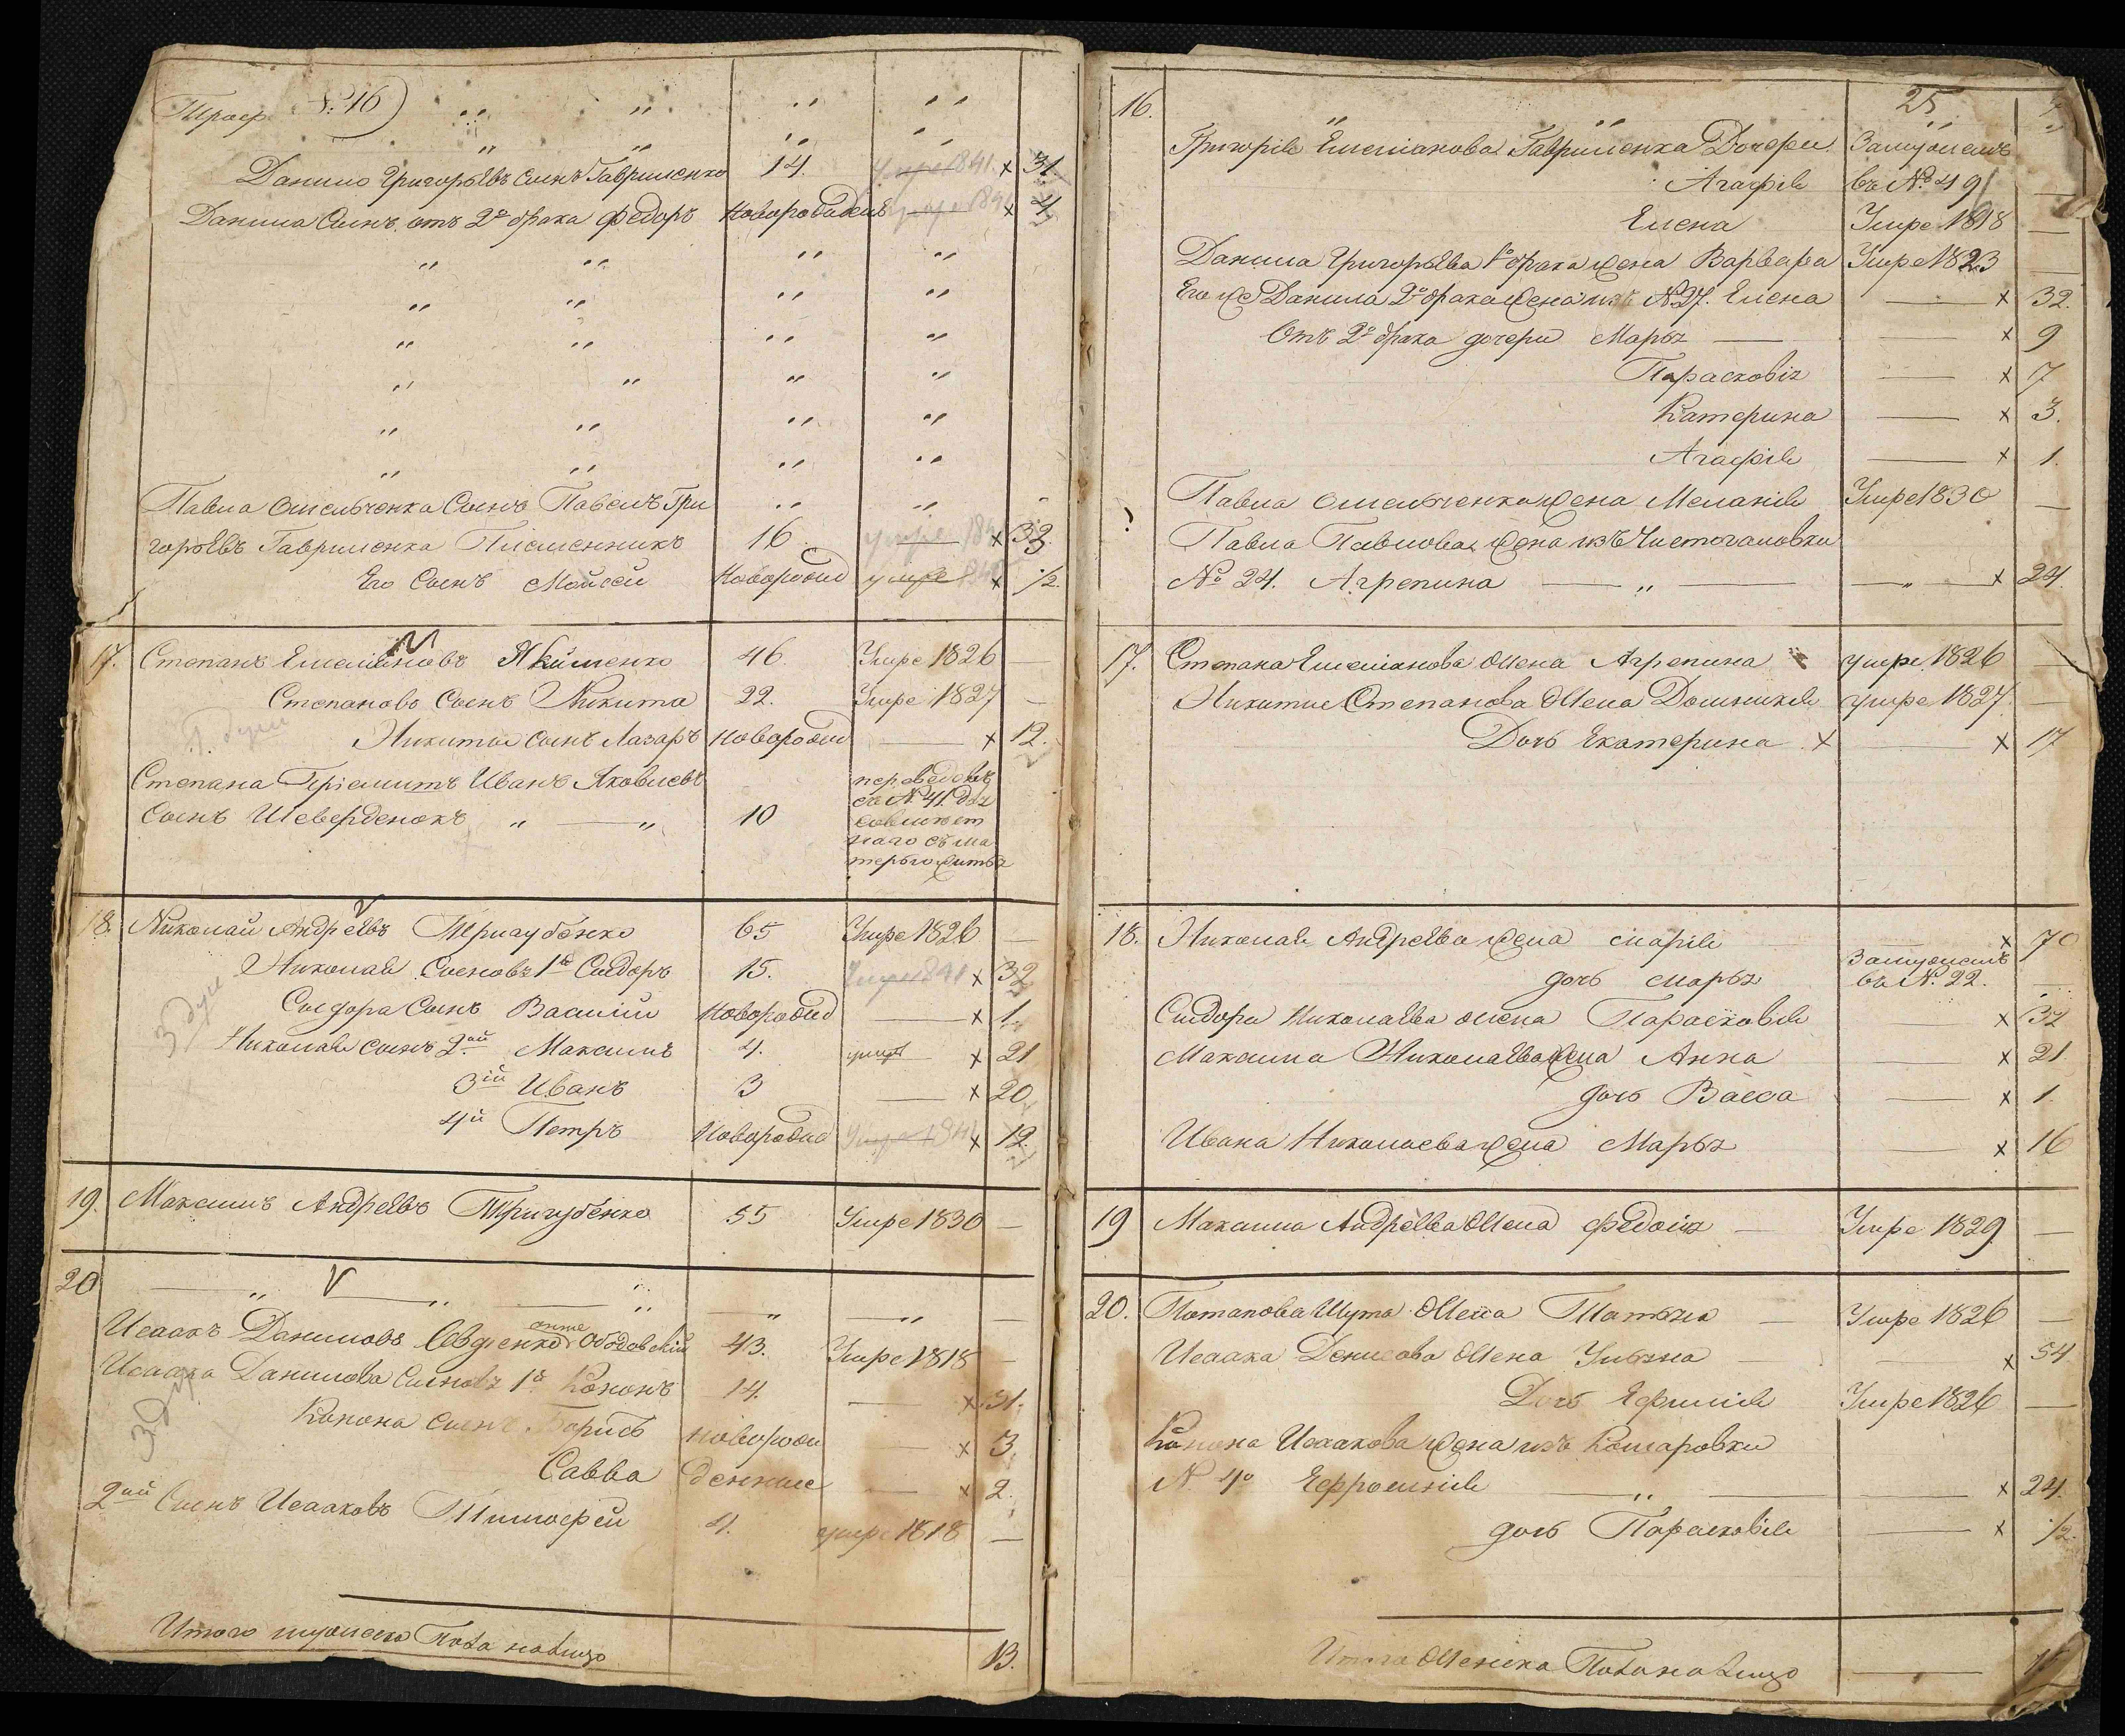 № 16
Данило Григорьевъ сынъ Гавриленко 14. умре 1841. x 31.
Данила Сынъ отъ 2го брака Федоръ Новорожденъ x 4
Павла Омельченка Сынъ Павелъ Гри
горьевъ Гавриленка Племенникъ 16 x 32.
Его Сынъ Мойсей Новорожд умре x 1/2.
17. Степанъ Емельяновъ Якименко 46. Умре 1826 —
Степановъ Сынъ Никита 22. Умре 1827 —
Никиты сынъ Лазаръ новорожд — x 12.
Степана Иванъ Яковлевъ
сынъ Шеверденокъ „ — „ 10
переведенъ
въ № 41. для
совмест
наго съ ма
терью житья
18. Николай Андреевъ Тригубенко 65 Умре 1826 —
Николая Сыновъ 1й Сидоръ 15. x 32
3 души
Сидора Сынъ Василий Новорожд — x 1
Николая сынъ 2ой Максимъ 4. умре x 21
3ій Иванъ 3 — x 20
4й Петръ Новорожд Умре 1841 x 12.
19. Максимъ Андреевъ Тригубенко 55 Умре 1830 —
20
Исаакъ Даниловъ Овдіенко онже Ободовскій 43. Умре 1818 —
Исаака Данилова Сыновъ 1й Кононъ 14. — x 31.
Конона сынъ Борисъ новорож — x 3
Савва денные — x 2.
2ой Сынъ Исааковъ Тимофей 4. умре 1818 —
Итого мужеска Пола налицо 13.
16. 25
Григорія Емельянова Гавриленка Дочери Замужемъ
Агафія въ № 49 —
Елена Умре 1818 —
Данила Григорьева 1го брака жена Варвара Умре 1823 —
Его же Данила 2го брака жена изъ № 27. Елена — x 32.
Отъ 2го брака дочери Марья — — x 9
Парасковія — x 7
Катерина — x 3.
Агафія — x 1.
Павла Омельченка жена Меланія Умре 1830 —
Павла Павлова жена изъ Чистогаловки
№ 24. Агрепина — „ — — x 24.
17. Степана Емельянова Жена Агрепина умре 1826 —
Никиты Степанова Жена Домникія умре 1827 —
Дочь Екатерина x — x 17
18. Николая Андреева жена Марія x 70
дочь Марья Замужемъ въ № 22. —
Сидора Николаева жена Парасковія — x 32
Максима Николаева жена Анна — x 21
дочь Васса — x 1
Ивана Николаева жена Марья — x 16
19 Максима Андреева Жена Федосія — Умре 1829 —
20. Потапова Шута Жена Татьяна — Умре 1826 —
Исаака Денисова Жена Ульяна — x 54
Дочь Ефимія Умре 1826 —
Конона Исаакова жена изъ Комаровки
№ 40 Ефросинія — „ — — x 24.
дочь Парасковія — x 1/2.
Итого Женска Пола налицо —